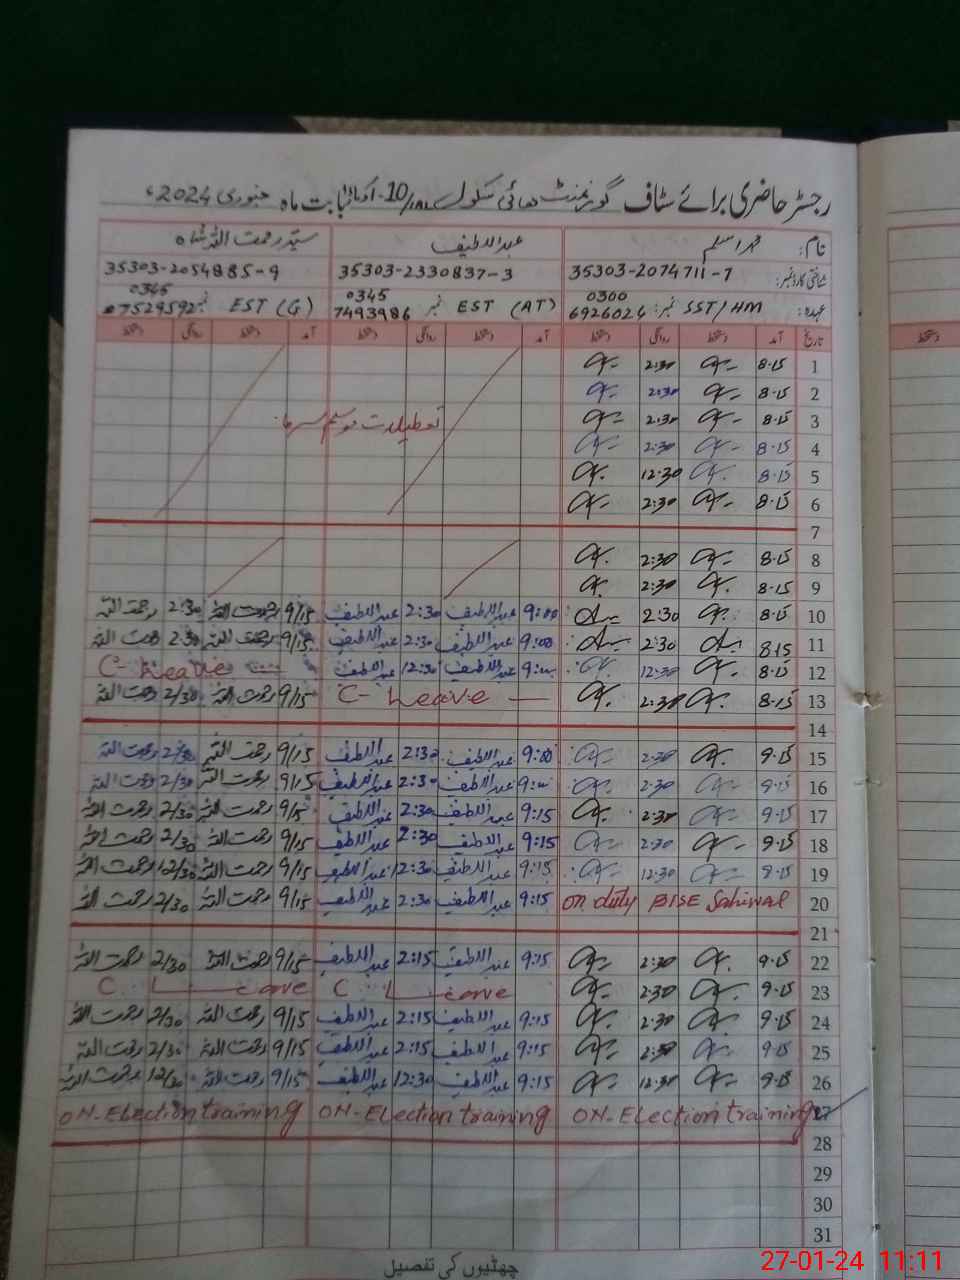 رجسٹر حاضری برائے سٹاف گورنمنٹ ہائی سکول 10/1AL اوکاڑا بابت ماہ جنوری 2024ء
نام: محمد اسلم عبداللطیف سید رحمت اللہ شاہ
شناختی کارڈ نمبر: 35303-2074711-7 35303-2330837-3 35303-2054885-9
عہدہ: SST/HM نمبر: 0300 6926024 EST (AT) نمبر 0345 7493986 EST (G) نمبر 0345 7529592
تاریخ آمد دستخط روانگی دستخط آمد دستخط روانگی دستخط آمد دستخط روانگی دستخط دستخط
1 8-15 2:30
2 8-15 2:30
3 8-15 2:30 تعطیلات موسم سرما
4 8-15 2:30
5 8-15 12:30
6 8-15 2:30
7
8 8-15 2:30
9 8-15 2:30
10 8-15 2:30 9:00 عبداللطیف 2:30 عبداللطیف 9/15 رحمت اللہ 2:30 رحمت اللہ
11 8-15 2:30 9:00 عبداللطیف 2:30 عبداللطیف 9/15 رحمت اللہ 2:30 رحمت اللہ
12 8-15 12:30 9:00 عبداللطیف 12:30 عبداللطیف C- Leave
13 8-15 2:30 C- Leave 9/15 رحمت اللہ 2/30 رحمت اللہ
14
15 9-15 2:30 9:00 عبداللطیف 2:30 عبداللطیف 9/15 رحمت اللہ 2/30 رحمت اللہ
16 9-15 2:30 9:00 عبداللطیف 2:30 عبداللطیف 9/15 رحمت اللہ 2/30 رحمت اللہ
17 9-15 2:30 9:15 عبداللطیف 2:30 عبداللطیف 9/15 رحمت اللہ 2/30 رحمت اللہ
18 9-15 2:30 9:15 عبداللطیف 2:30 عبداللطیف 9/15 رحمت اللہ 2/30 رحمت اللہ
19 9-15 12:30 9:15 عبداللطیف 12:30 عبداللطیف 9/15 رحمت اللہ 12/30 رحمت اللہ
20 on duty BISE Sahiwal 9:15 عبداللطیف 2:30 عبداللطیف 9/15 رحمت اللہ 2/30 رحمت اللہ
21
22 9-15 2:30 9:15 عبداللطیف 2:15 عبداللطیف 9/15 رحمت اللہ 2/30 رحمت اللہ
23 9-15 2:30 C Leave C Leave
24 9-15 2:30 9:15 عبداللطیف 2:15 عبداللطیف 9/15 رحمت اللہ 2/30 رحمت اللہ
25 9-15 2:30 9:15 عبداللطیف 2:15 عبداللطیف 9/15 رحمت اللہ 2/30 رحمت اللہ
26 9-15 12:30 9:15 عبداللطیف 12:30 عبداللطیف 9/15 رحمت اللہ 12/30 رحمت اللہ
27 ON-Election training ON-Election training ON-Election training
28
29
30
31
چھٹیوں کی تفصیل
27-01-24 11:11